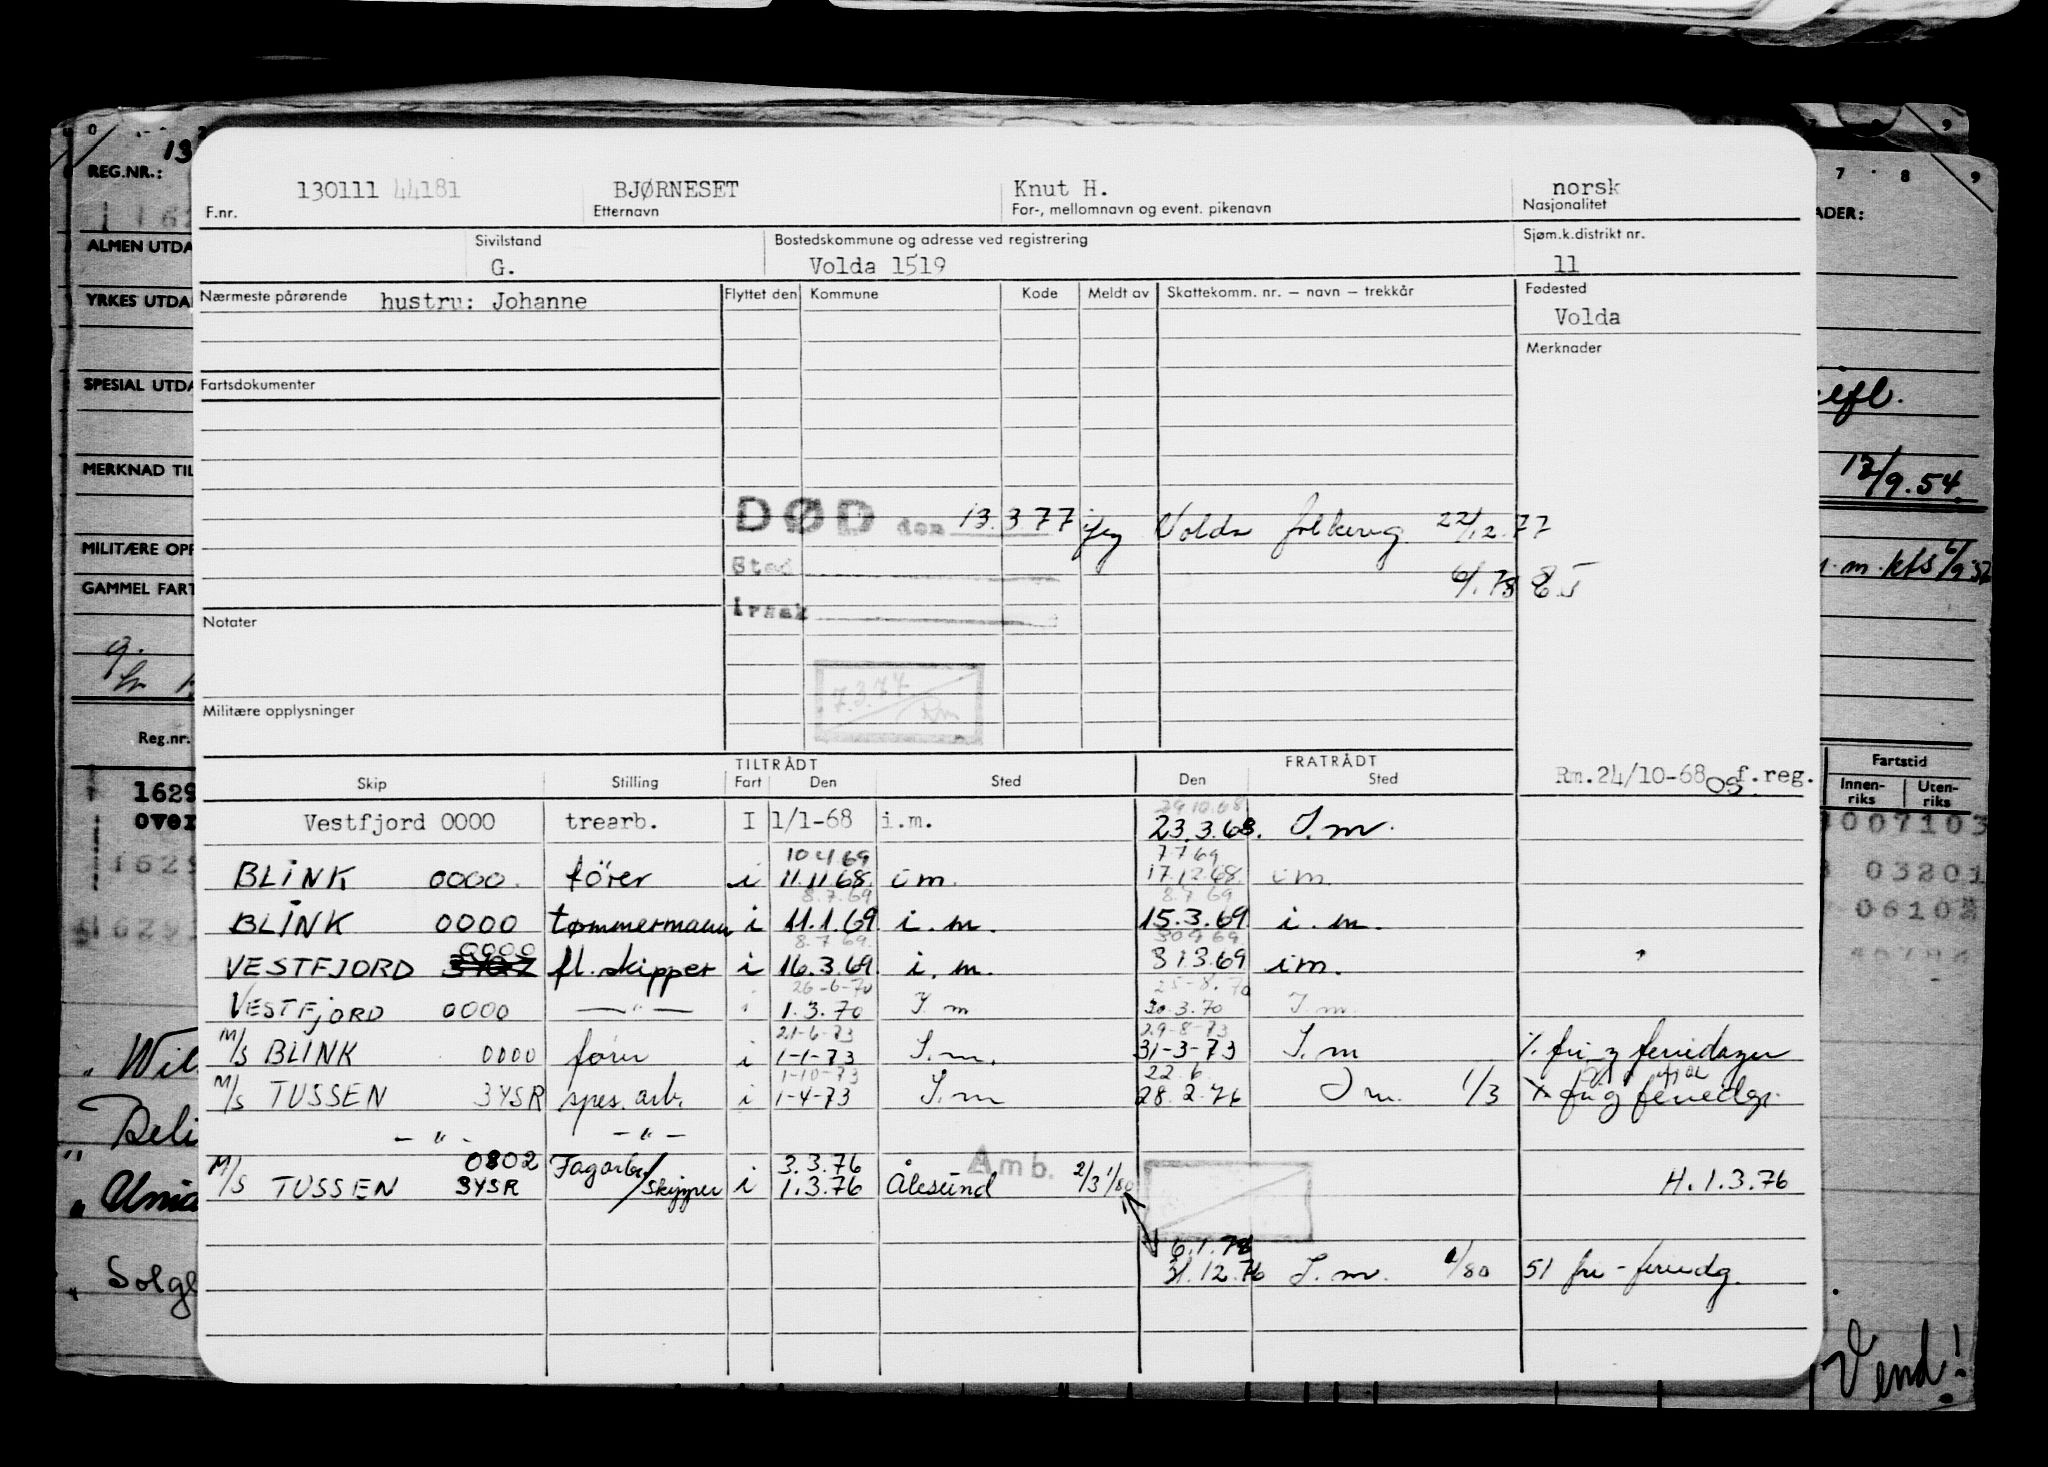 REG.NR.:
130111 44181 BJØRNESET Knut H. norsk
F.nr. Etternavn For-, mellomnavn og event. pikenavn Nasjonalitet
Sivilstand Bostedskommune og adresse ved registrering Sjøm.k.distrikt nr.
G. Volda 1519 11
Nærmeste pårørende hustru: Johanne Flyttet den Kommune Kode Meldt av Skattekomm. nr. — navn — trekkår Fødested
Volda
Merknader
Fartsdokumenter
12/9.54
DØD den 13.3.77 Volda 22/12.77
Sted
Årsak
Notater
7.3.74
Militære opplysninger
Reg.nr.
TILTRÅDT FRATRÅDT
Skip Stilling Fart Den Sted Den Sted Rm.24/10-68 OS f.reg.
Fartstid
Innen-riks Uten-riks
29.10.68
Vestfjord 0000 trearb. I 1/1-68 i.m. 23.3.68. I.m.
10.4.69 7.7.69
BLINK 0000. fører i 11.11.68. im. 17.12.68. im.
8.7.69 8.7.69
BLINK 0000 tømmermann i 11.1.69 i.m. 15.3.69 i.m.
0000 8.7.69. 30.9.69
VESTFJORD fl.skipper i 16.3.69 i.m. 31.3.69 im.
26-6-70 25-8.70
VESTFJORD 0000 —"— i 1.3.70 I.m 20.3.70 I.m.
21-6-73 29-8-73
M/S BLINK 0000 fører i 1-1-73 I.m. 31-3-73 I.m % fri og feriedager
1-10-73 22.6
M/S TUSSEN 3YSR spes. arb. i 1-4-73 I.m 28.2.76 I m. 1/3
—"— —"—
0802 Fagarb/ 3.3.76 Amb.
M/S TUSSEN 3YSR Skipper i 1.3.76 Ålesund 2/3 1/80 H.1.3.76
6.1.78
31.12.76 I.m. 1/80 51 fri-feriedg.
Vend!
ALMEN UTDA
YRKES UTDA
SPESIAL UTDA
MERKNAD TIL
MILITÆRE OPP
GAMMEL FART